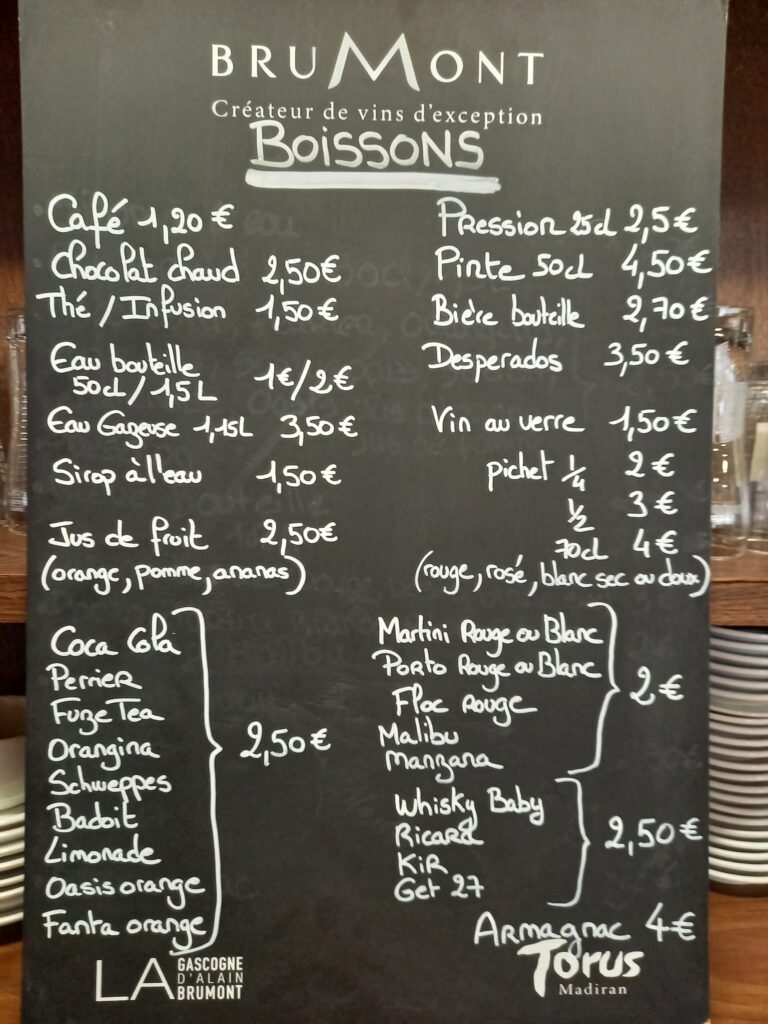 BRUMONT
Créateur de vins d'exception
BOISSONS
Café 1,20 €
Chocolat chaud 2,50€
Thé / Infusion 1,50€
Eau bouteille
50cl / 1,5L 1€/2€
Eau Gazeuse 1,15L 3,50€
Sirop à l'eau 1,50€
Jus de fruit 2,50€
(orange, pomme, ananas)
Coca Cola
Perrier
Fuze Tea
Orangina
Schweppes
Badoit
Limonade
Oasis orange
Fanta orange
2,50€
Pression 25cl 2,5€
Pinte 50cl 4,50€
Bière bouteille 2,70€
Desperados 3,50€
Vin au verre 1,50€
pichet 1/4 2€
1/2 3€
70cl 4€
(rouge, rosé, blanc sec ou doux)
Martini Rouge ou Blanc
Porto Rouge ou Blanc
Floc Rouge
Malibu
Manzana
2€
Whisky Baby
Ricard
Kir
Get 27
2,50€
Armagnac 4€
LA GASCOGNE
D'ALAIN
BRUMONT
Torus
Madiran